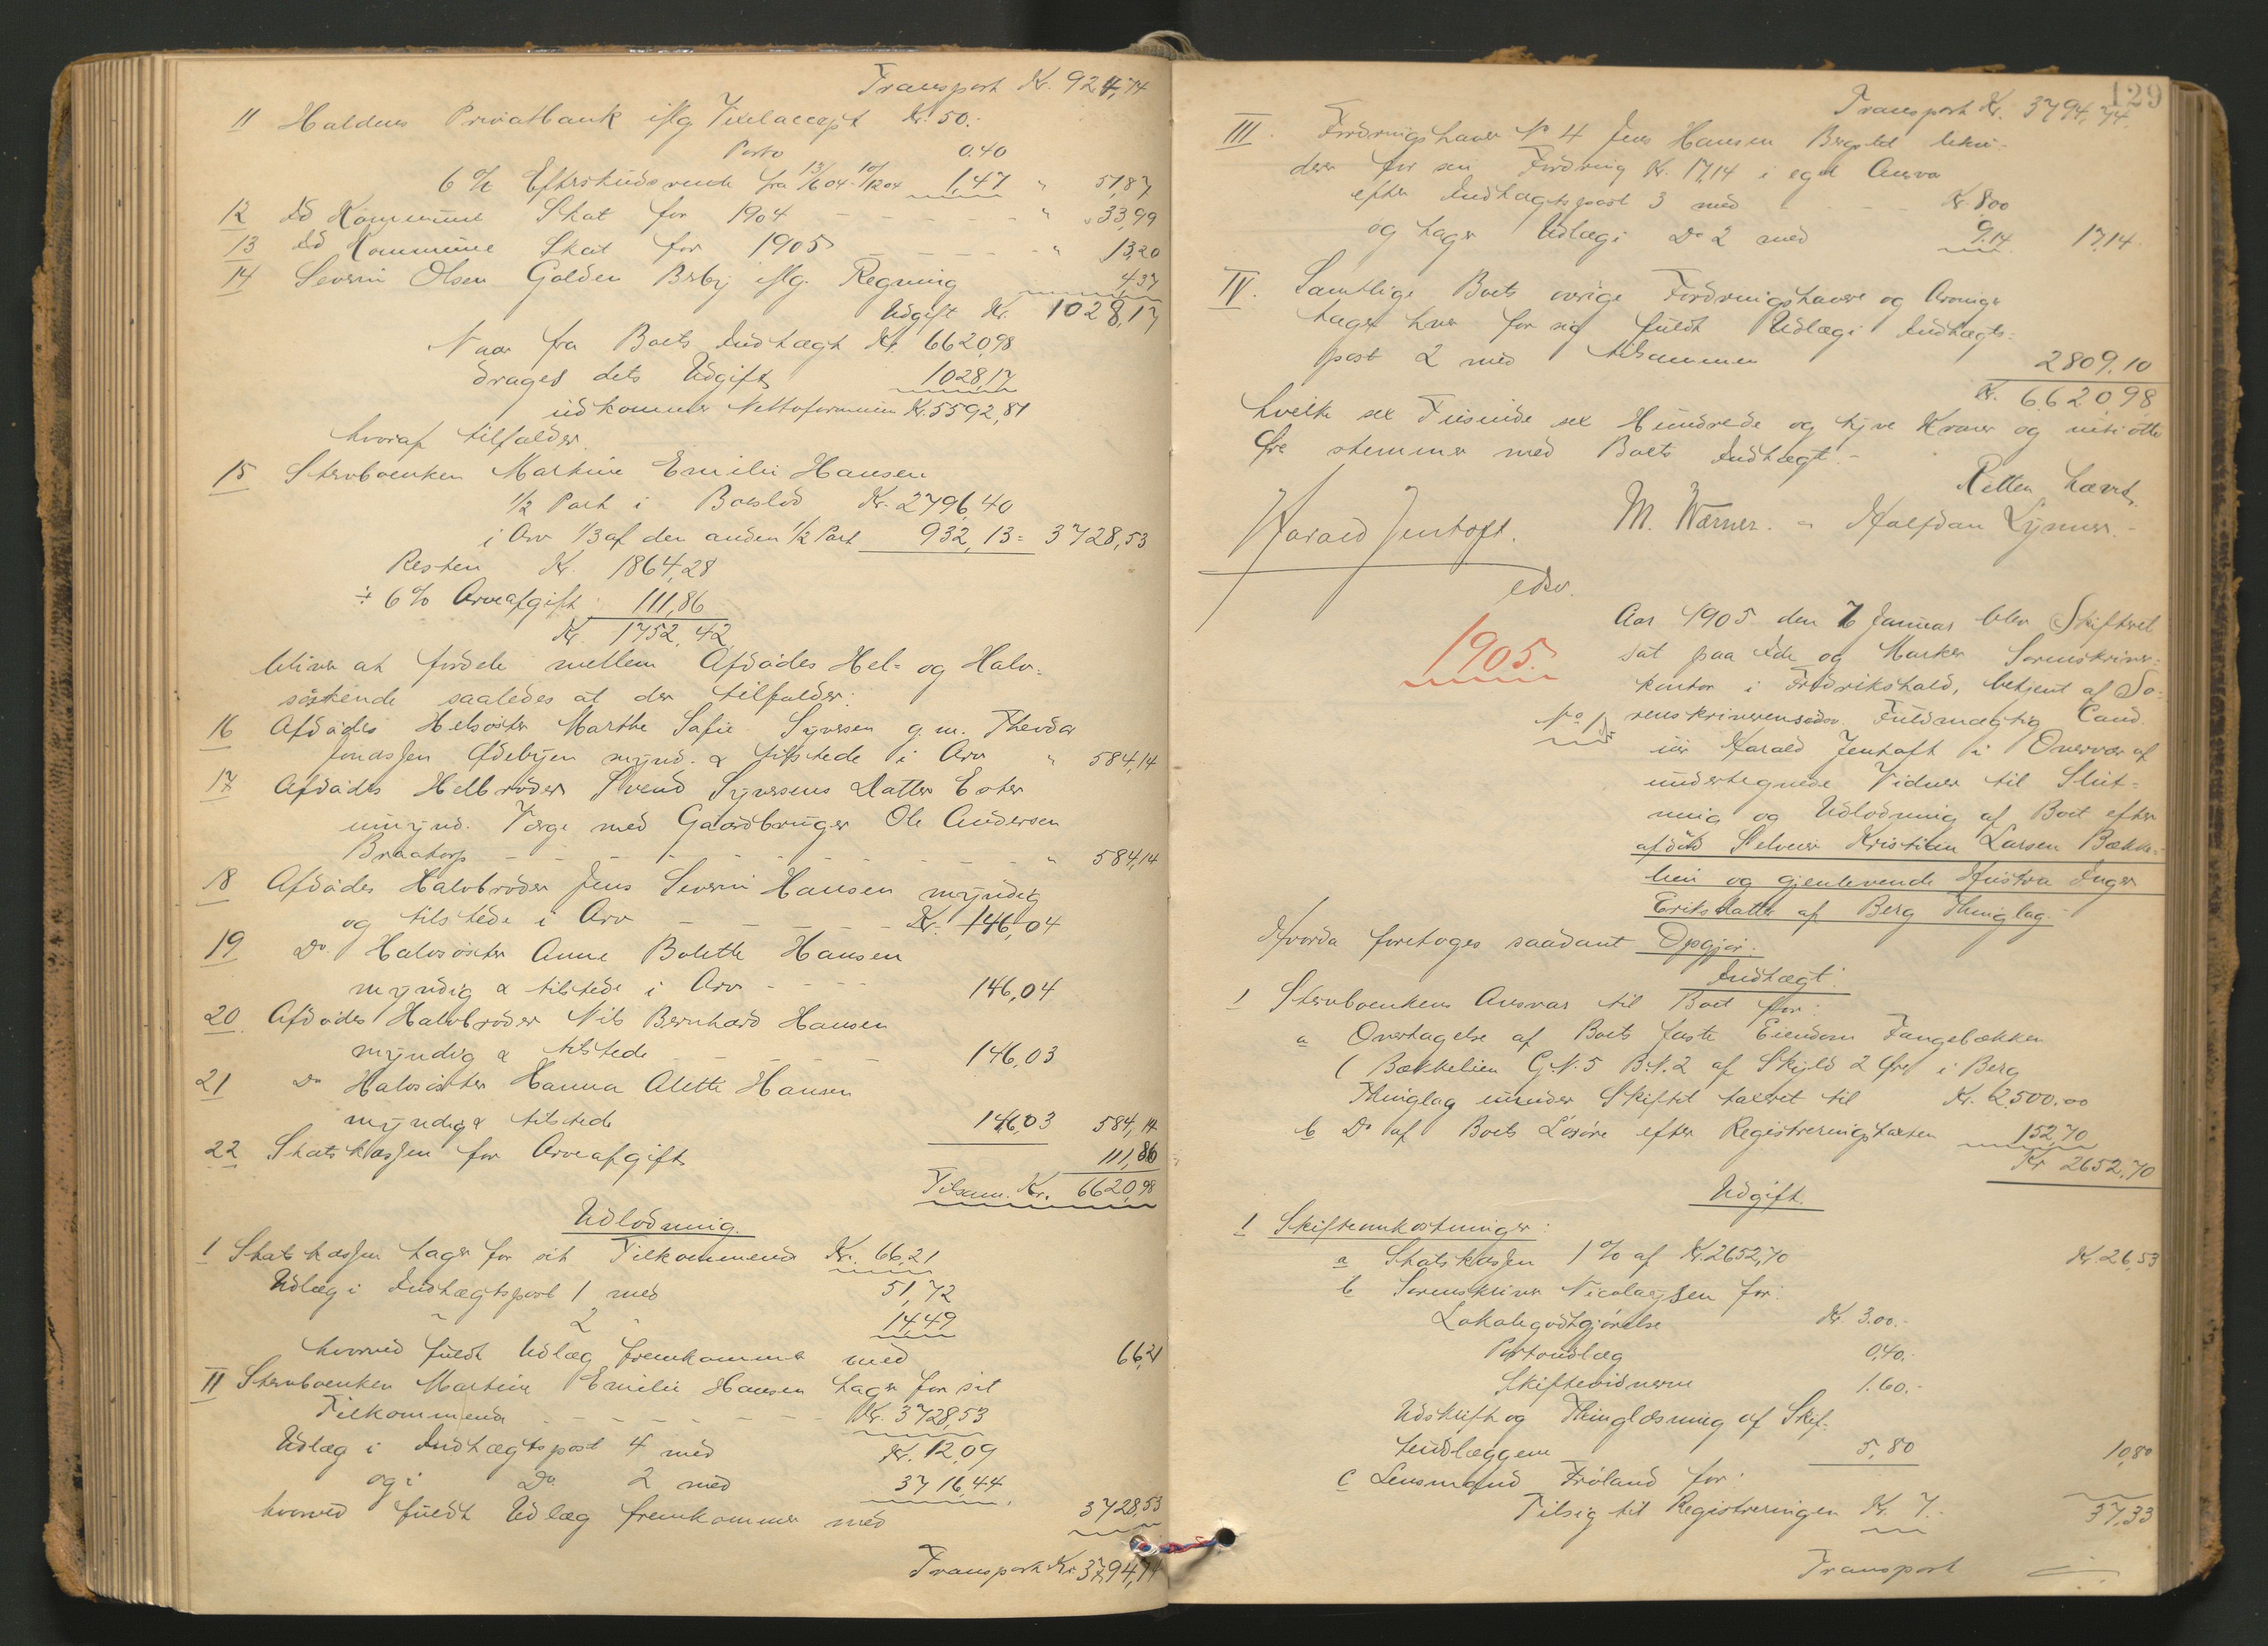 Transport Kr. 924,74
11 Haldens Privatbank iflg. Vexelaccept Kr. 50.-
Porto 0.40
6 % Efterskudsrente fra 13/6 04 - 10/12 04 1,47 " 51,87
12 Id Kommune Skat for 1904 - - - - - " 33,99
13 Id Kommune Skat for 1905 - - - - - " 13,20
14 Severin Olsen Golden Berby iflg. Regning 4,37
Udgift Kr. 1028,17
Naar fra Boets Indtægt Kr. 6620,98
drages dets Udgift 1028,17
udkommer Nettoformuen Kr. 5592,81
hvoraf tilfalder
15 Stervboenken Martine Emilie Hansen
1/2 Part i Boeslod Kr. 2796,40
i Arv 1/3 af den anden 1/2 Part 932,13 = 3728,53
Resten Kr. 1864,28
÷ 6 % Arveafgift 111,86
Kr. 1752,42
bliver at fordele mellem Afdødes Hel- og Halv-
søskende saaledes at der tilfalder:
16 Afdødes Helsøster Marthe Sofie Syversen g. m. Theodor
Jonassen Ødebyen mynd. & tilstede i Arv " 584,14
17 Afdødes Helbroder Svend Syversens Datter Ester
umynd. Værge med Gaardbruger Ole Andersen
Braatorp - - - - - - - - - - " 584,14
18 Afdødes Halvbroder Jens Severin Hansen myndig
og tilstede i Arv - - - - - Kr. 146,04
19 Do. Halvsøster Anne Bolette Hansen
myndig & tilstede i Arv - - - - 146,04
20 Afdødes Halvbroder Nils Bernhard Hansen
myndig & tilstede - - - - 146,03
21 Do Halvsøster Hanna Alette Hansen
myndig & tilstede 146,03 584,14
22 Statskassen for Arveafgift 111,86
Tilsam. Kr. 6620,98
Udlodning.
I Statskassen tager for sit Tilkommende Kr. 66,21
Udlæg i Indtægtspost 1 med 51,72
" 2 " 14,49
hvorved fuldt Udlæg fremkommer med 66,21
II Stervboenken Martine Emilie Hansen tager for sit
Tilkommende - - - - - - - Kr. 3728,53
Udlæg i Indtægtspost 4 med Kr. 12,09
og i Do 2 med 3716,44
hvorved fuldt Udlæg fremkommer med 3728,53
Transport Kr. 3794,74
129
Transport Kr. 3794,74.
III. Fordringshaver No 4 Jens Hansen Bergstad likvi-
derer for sin Fordring Kr. 17,14 i eget Ansvar
efter Indtægtspost 3 med - - - Kr. 8.00
og tager Udlæg i Do 2 med 9.14 17,14.
IV. Samtlige Boets øvrige Fordringshavere og Arvinger
tager hver for sig fuldt Udlæg i Indtægts-
post 2 med tilsammen 2809,10
Kr. 6620,98
hvilke sex Tusinde sex Hundrede og tyve Kroner og nitiotte
Øre stemmer med Boets Indtægt.-
Retten hævet.
Harald Jentoft. M. Wærner. - Halfdan Lysner.-
edsv.
1905.
Aar 1905 den 7 Januar blev Skifteret
sat paa Idde og Marker Sorenskriver-
kontor i Fredrikshald, betjent af So-
No 1 renskriverens edsv. Fuldmægtig Cand.
jur Harald Jentoft i Overvær af
undertegnede Vidner til Slut-
ning og Udlodning af Boet efter
afdøde Selveier Kristian Larsen Bække-
lien og gjenlevende Hustru Inger
Eriksdatter af Berg Thinglag.-
Hvorda foretoges saadant Opgjør.
Indtægt:
1 Stervboenkens Ansvar til Boet for:
a Overtagelse af Boets faste Eiendom Fangebækken
( Bækkelien G.N. 5 B.N. 2 af Skyld 2 Øre i Berg
Thinglag under Skiftet taxeret til Kr. 2500.00
b Do af Boets Løsøre efter Registreringstaxten 152,70
Kr 2652,70
Udgift.
1 Skifteomkostninger:
a Statskassen 1 % af Kr. 2652,70 Kr. 26,53
b Sorenskriver Nicolaysen for:
Lokalegodtgjørelse Kr. 3.00.-
Portoudlæg 0,40.-
Skiftevidnerne 1.60.-
Udskrift og Thinglæsning af Skif-
teudlæggene 5,80 10,80
c Lensmand Frøland for:
Tilsig til Registreringen Kr. 7.- 37,33
Transport